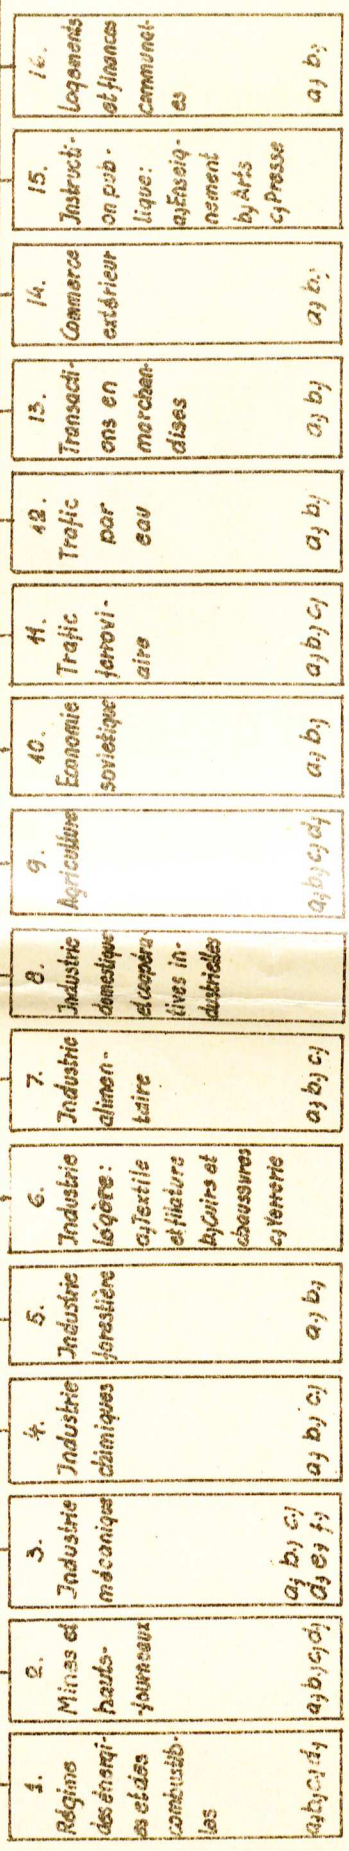 1.
Régime
des énergi-
es et des
combustib-
les
a) b) c) d)
2.
Mines et
hauts-
-fourneaux
a) b) c) d)
3.
Industrie
mécanique
a) b) c)
d) e) f)
4.
Industrie
chimiques
a) b) c)
5.
Industrie
forestière
a) b)
6.
Industrie
légère:
a) Textile
et filature
b) Cuirs et
chaussures
c) Verrerie
7.
Industrie
alimen-
taire
a) b) c)
8.
Industrie
domestique
et coopéra
tives in-
dustrielles
9.
Agriculture
a) b) c) d)
10.
Economie
soviétique
a) b)
11.
Trafic
ferrovi-
aire
a) b) c)
12.
Trafic
par
eau
a) b)
13.
Transacti-
ons en
marchan-
dises
a) b)
14.
Commerce
extérieur
a) b)
15.
Instructi-
on pub-
lique:
a) Enseig-
nement
b) Arts
c) Presse
16.
Logements
et finances
communal-
es
a) b)